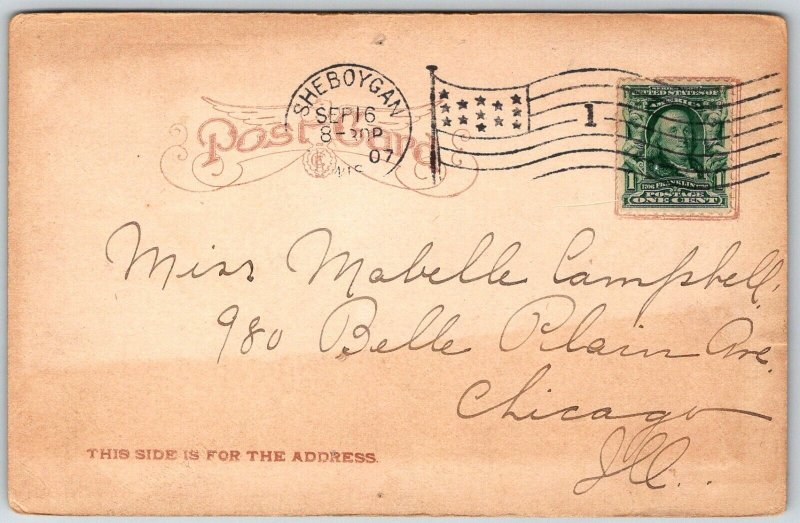 SHEBOYGAN
SEP 16
8-30P
07
WIS
1
Post Card
SERIES 1902
UNITED STATES OF
AMERICA
1706 FRANKLIN 1790
1 POSTAGE 1
ONE CENT
Miss Mabelle Campbell,
980 Belle Plain Ave.
Chicago
Ill.
THIS SIDE IS FOR THE ADDRESS.